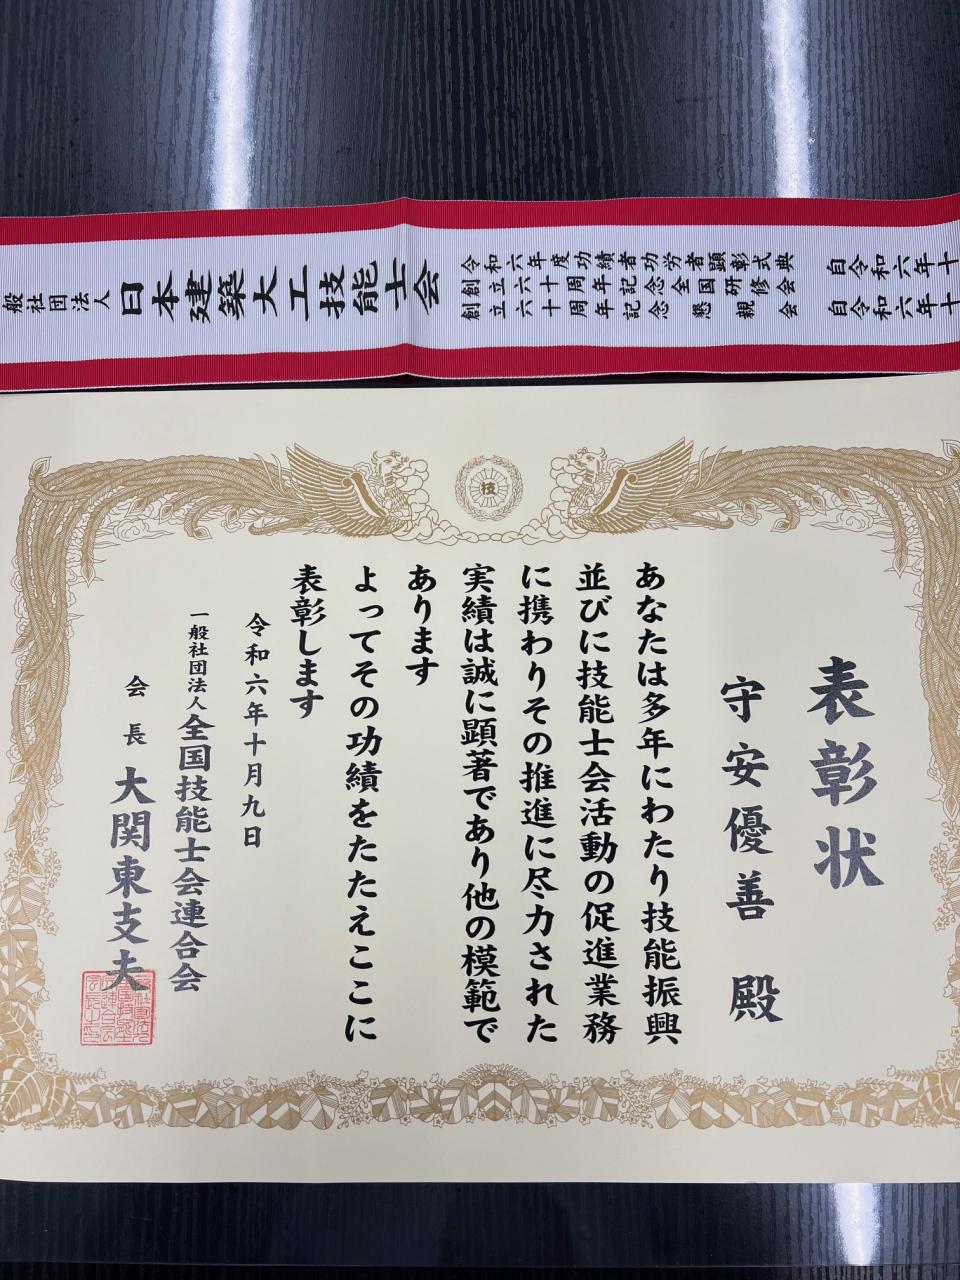 般社団法人
日本建築大工技能士会
令和六年度功績者功労者顕彰式典
創立六十周年記念全国研修会
創立六十周年記念懇親会
自令和六年十
自令和六年十
技
表彰状
守安優善 殿
あなたは多年にわたり技能振興
並びに技能士会活動の促進業務
に携わりその推進に尽力された
実績は誠に顕著であり他の模範で
あります
よってその功績をたたえここに
表彰します
令和六年十月九日
一般社団法人全国技能士会連合会
会長 大関東支夫